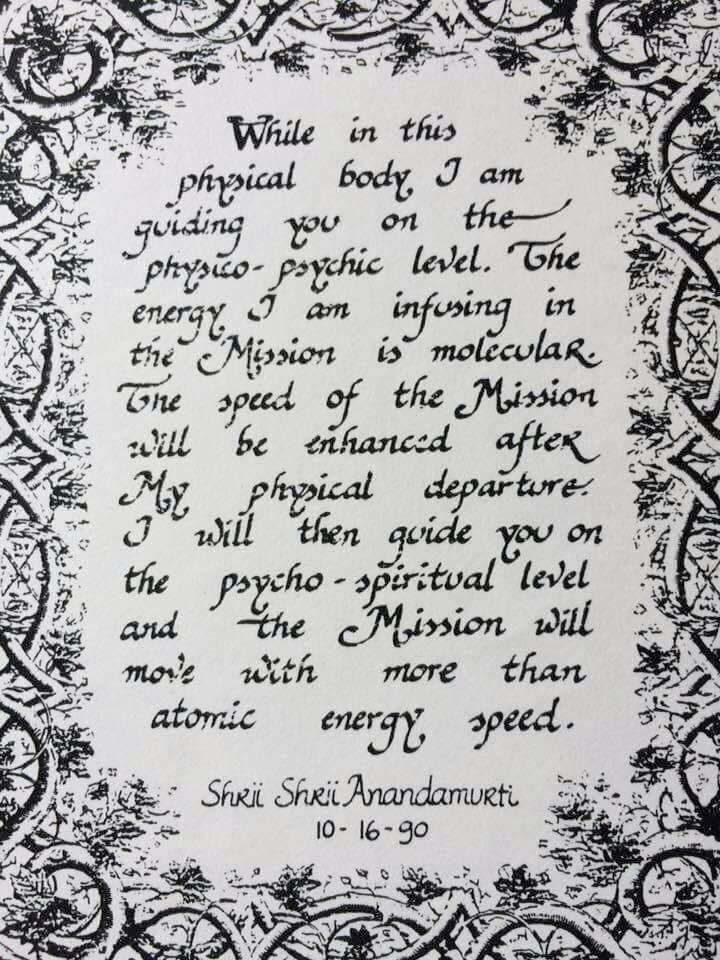 While in this
physical body I am
guiding you on the
physico-psychic level. The
energy I am infusing in
the Mission is molecular.
The speed of the Mission
will be enhanced after
My physical departure.
I will then guide you on
the psycho-spiritual level
and the Mission will
move with more than
atomic energy speed.
Shrii Shrii Anandamurti
10-16-90